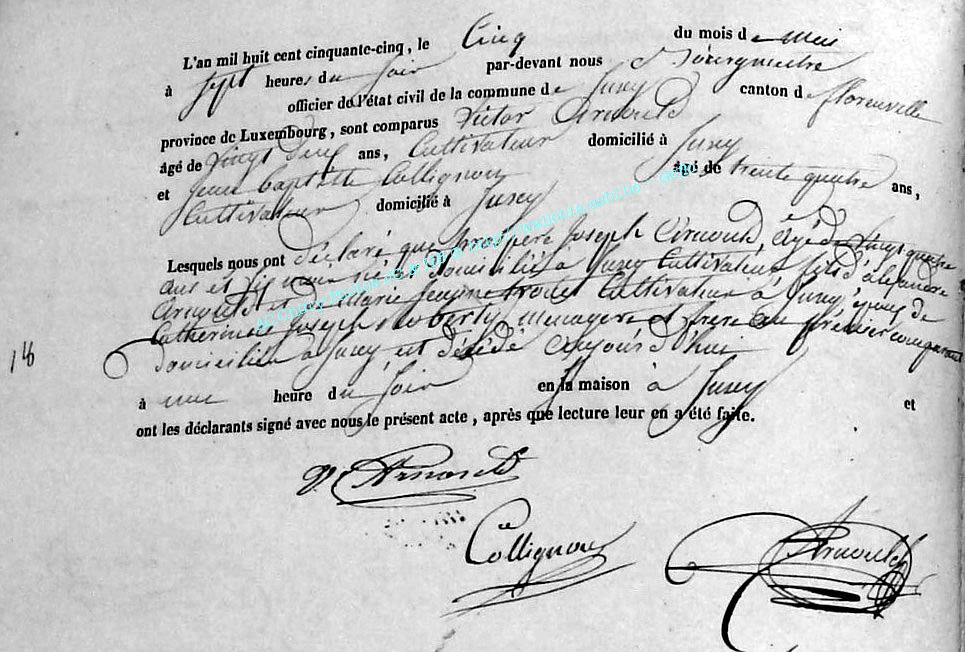 L'an mil huit cent cinquante-cinq, le Cinq du mois de mai
à Sept heures du Soir par-devant nous Bourgmestre
officier de l'état civil de la commune de Suxy canton de florenville
province de Luxembourg, sont comparus Victor Arnould
âgé de Vingt deux ans, Cultivateur domicilié à Suxy
et Jean baptiste Collignon âgé de trente quatre ans,
Cultivateur domicilié à Suxy
Lesquels nous ont déclaré que prospère Joseph Arnould, âgé de Vingt quatre
ans et six mois né et domicilié à Suxy Cultivateur fils d'alexandre
Arnould et de Marie Jeanne Cultivateur à Suxy époux de
Catherine Joseph Roberty Ménagère et frère au premier comparant
domiciliée à Suxy, est décédé aujourd'hui
à une heure du Soir en la maison à Suxy et
ont les déclarants signé avec nous le présent acte, après que lecture leur en a été faite.
18
V. Arnould
Collignon
Arnould